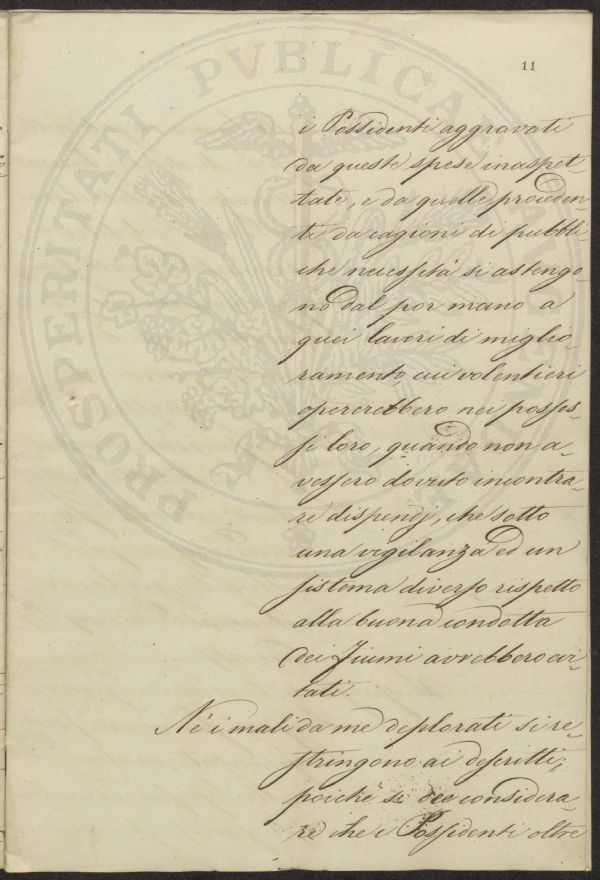 11
PROSPERITATI PVBLICAE
i Possidenti aggravati
da queste spese inaspet-
tate, e da quelle proceden
ti da cagioni di pubbli-
che necessità si astengo-
no dal por mano a
quei lavori di miglio-
ramento, cui volentieri
opererebbero nei posses-
si loro, quando non a-
vessero dovuto incontra-
re dispendj, che sotto
una vigilanza ed un
sistema diverso rispetto
alla buona condotta
dei Fiumi avrebbero evi-
tati.
Nè i mali da me deplorati si re-
stringono ai descritti;
poichè si dee considera-
re che i Possidenti oltre